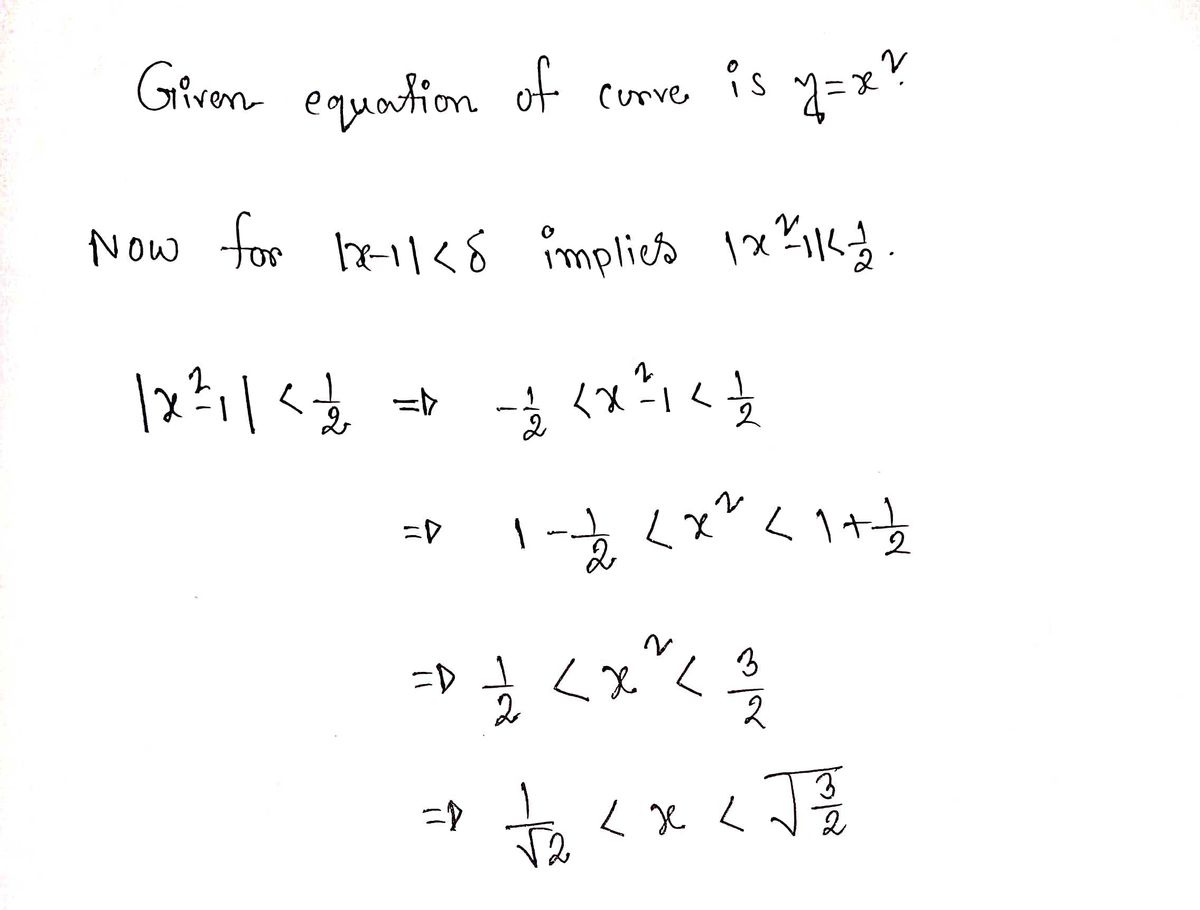 Given equation of curve is y=x².
Now for |x-1|<δ implies |x²-1|<1/2.
|x²-1| < 1/2 ⇒ -1/2 < x²-1 < 1/2
⇒ 1-1/2 < x² < 1+1/2
⇒ 1/2 < x² < 3/2
⇒ 1/√2 < x < √3/2